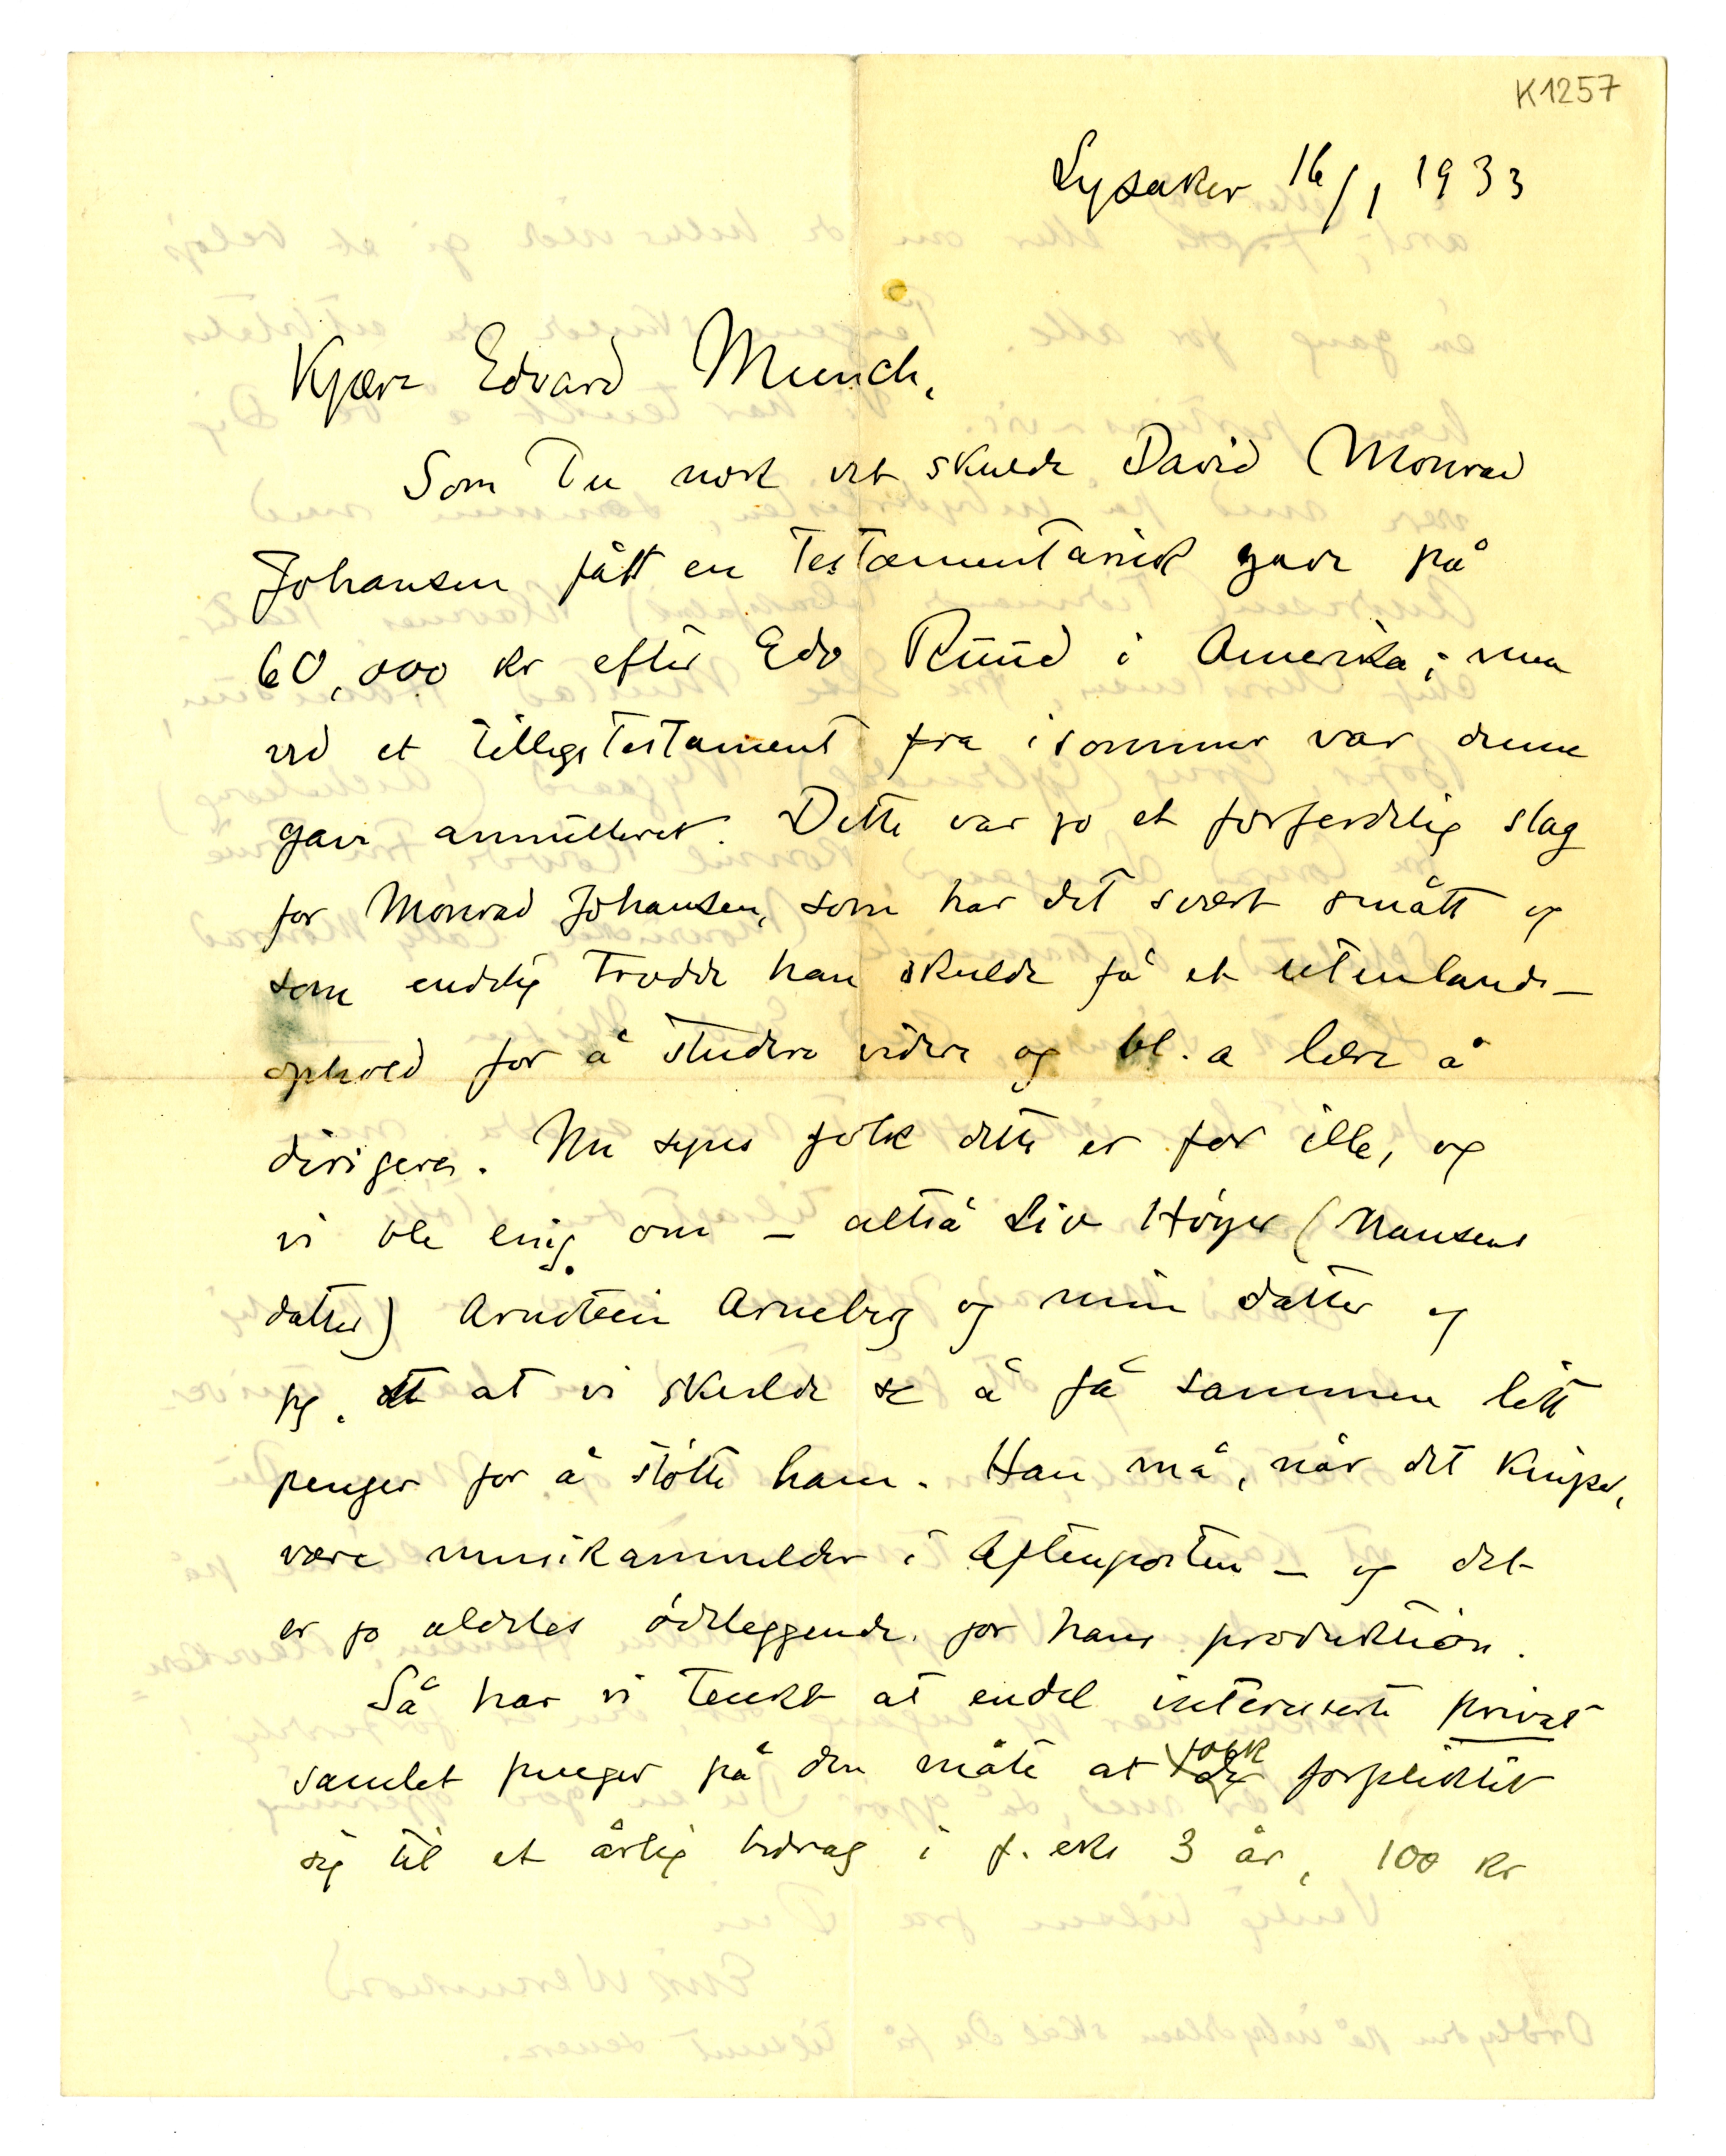 K1257
Lysaker 16/1 1933
Kjære Edvard Munch,
Som Du nok vet skulde David Monrad
Johansen fått en testamentarisk gave på
60,000 kr efter Edv Ruud i Amerika; men
ved et tilleggstestament fra isommer var denne
gave annulleret. Dette var jo et forferdelig slag
for Monrad Johansen, som har det svært smått og
som endelig trodde han skulde få et utenlands-
ophold for å studere videre og bl. a lære å
dirigere. Nu synes folk dette er for ille, og
vi ble enig om – altså Liv Höyer (Nansens
datter) Arnstein Arneberg og min datter og
jeg, at vi skulde se å få sammen litt
penger for å støtte ham. Han må, når det kniper,
være musikanmelder i Aftenposten – og det
er jo aldeles ödeleggende for hans produktion.
Så har vi tenkt at endel interesserte privat
samlet penger på den måte at folk forpliktet
sig til et årlig bidrag i f. eks 3 år, 100 kr